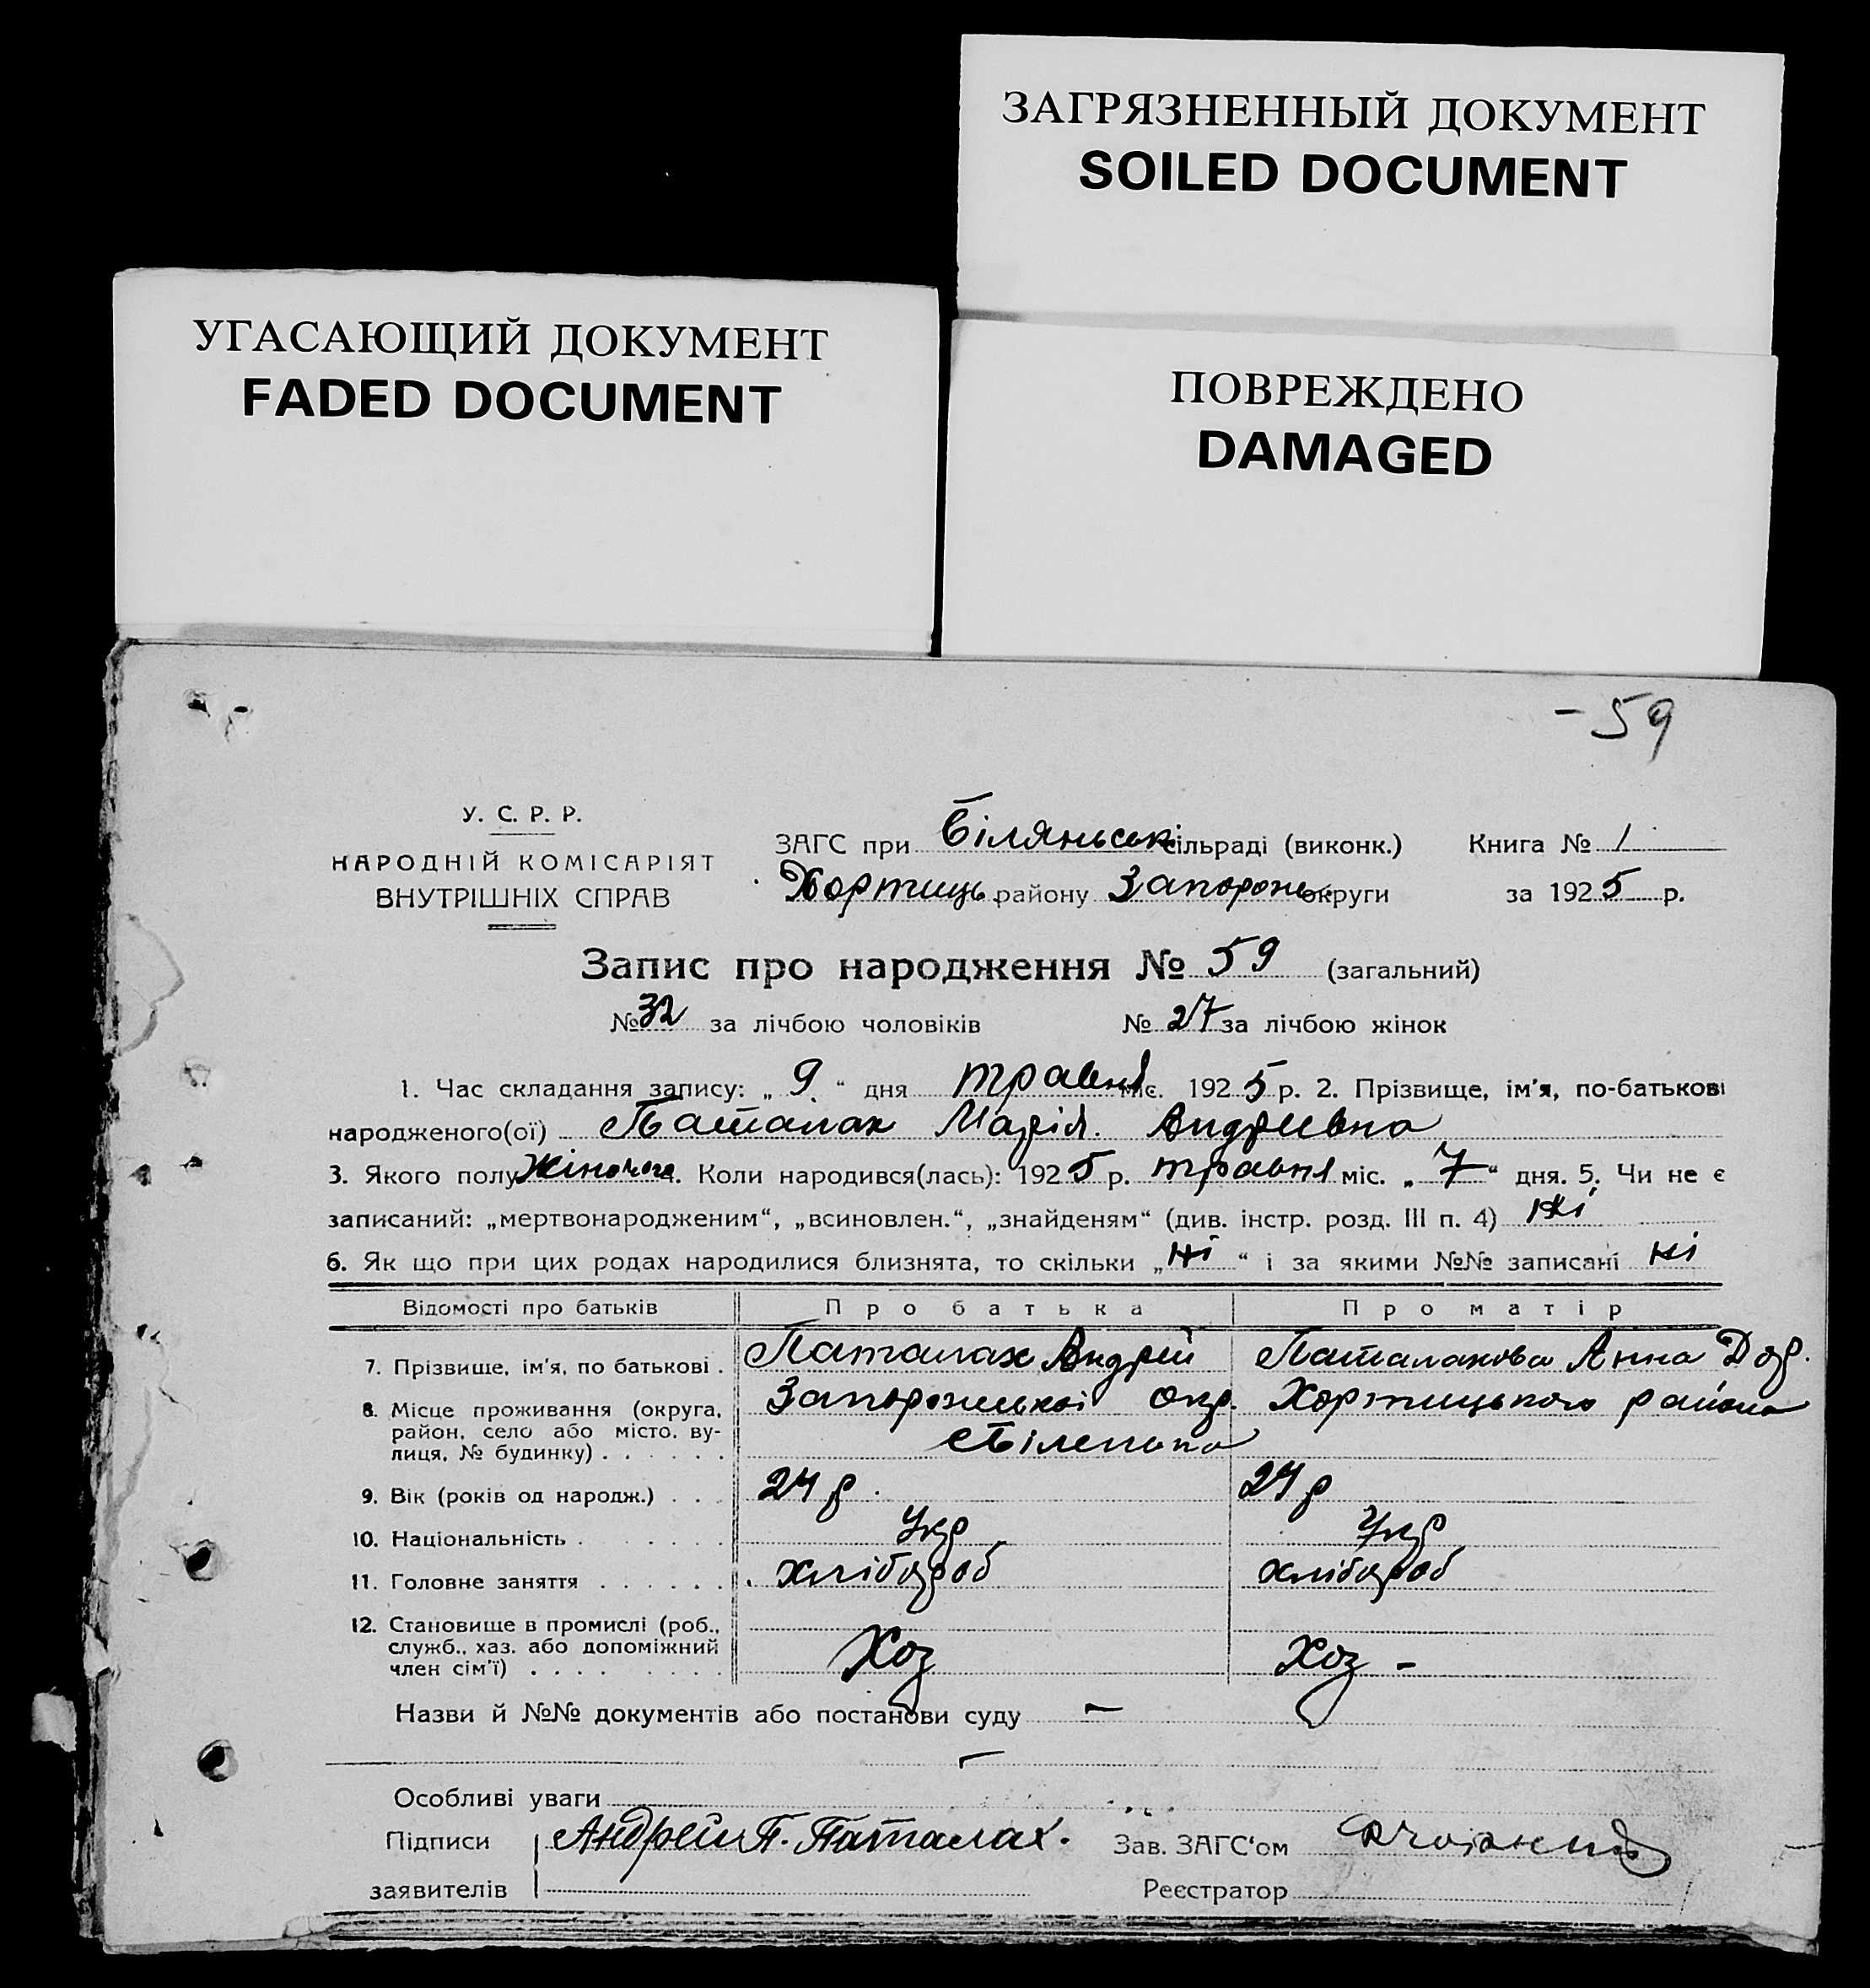 ЗАГРЯЗНЕННЫЙ ДОКУМЕНТ
SOILED DOCUMENT
УГАСАЮЩИЙ ДОКУМЕНТ
FADED DOCUMENT
ПОВРЕЖДЕНО
DAMAGED
- 59
У. С. Р. Р.
НАРОДНІЙ КОМІСАРІЯТ
ВНУТРІШНІХ СПРАВ
ЗАГС при Біляньській сільраді (виконк.) Книга № 1
Хортиць району Запорож округи за 1925 р.
Запис про народження № 59 (загальний)
№ 32 за лічбою чоловіків № 27 за лічбою жінок
1. Час складання запису: „ 9 “ дня травня міс. 1925 р. 2. Прізвище, ім'я, по-батькові
народженого(ої) Паталах Марія Андріївна
3. Якого полу Жіночого 4. Коли народився(лась): 1925 р. травня міс. „ 7 “ дня. 5. Чи не є
записаний: „мертвонародженим“, „всиновлен.“, „знайденям“ (див. інстр. розд. III п. 4) ні
6. Як що при цих родах народилися близнята, то скільки „ ні “ і за якими №№ записані ні
Відомості про батьків Про батька Про матір
7. Прізвище, ім'я, по батькові . Паталах Андрій Паталахова Анна
8. Місце проживання (округа, район, село або місто, вулиця, № будинку) . . . . . . Запорожської окр. Хортицького района
Біленька
9. Вік (років од народж.) . . . 24 р. 24 р
10. Національність . . . . . . . Укр Укр
11. Головне заняття . . . . . . хлібороб хлібороб
12. Становище в промислі (роб., служб., хаз. або допоміжний член сім'ї) . . . . . . . . Хоз Хоз -
Назви й №№ документів або постанови суду —
Особливі уваги
Підписи Андрей П. Паталах. Зав. ЗАГС'ом
заявителів Реєстратор